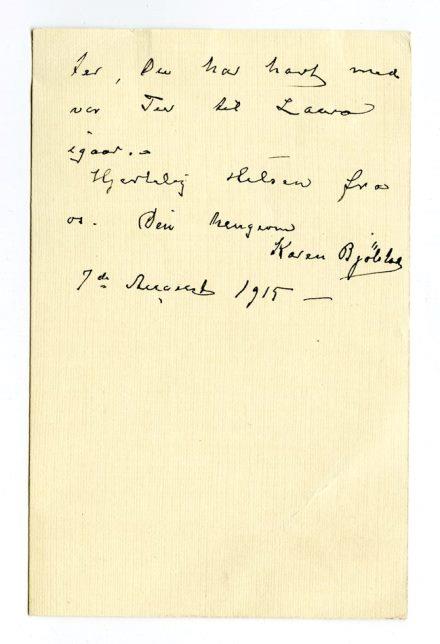 ter, Du har havt med
vor Tur til Laura
igaar. –
Hjertelig Hilsen fra
os. Din hengivne
Karen Bjölstad
7de August 1915 –